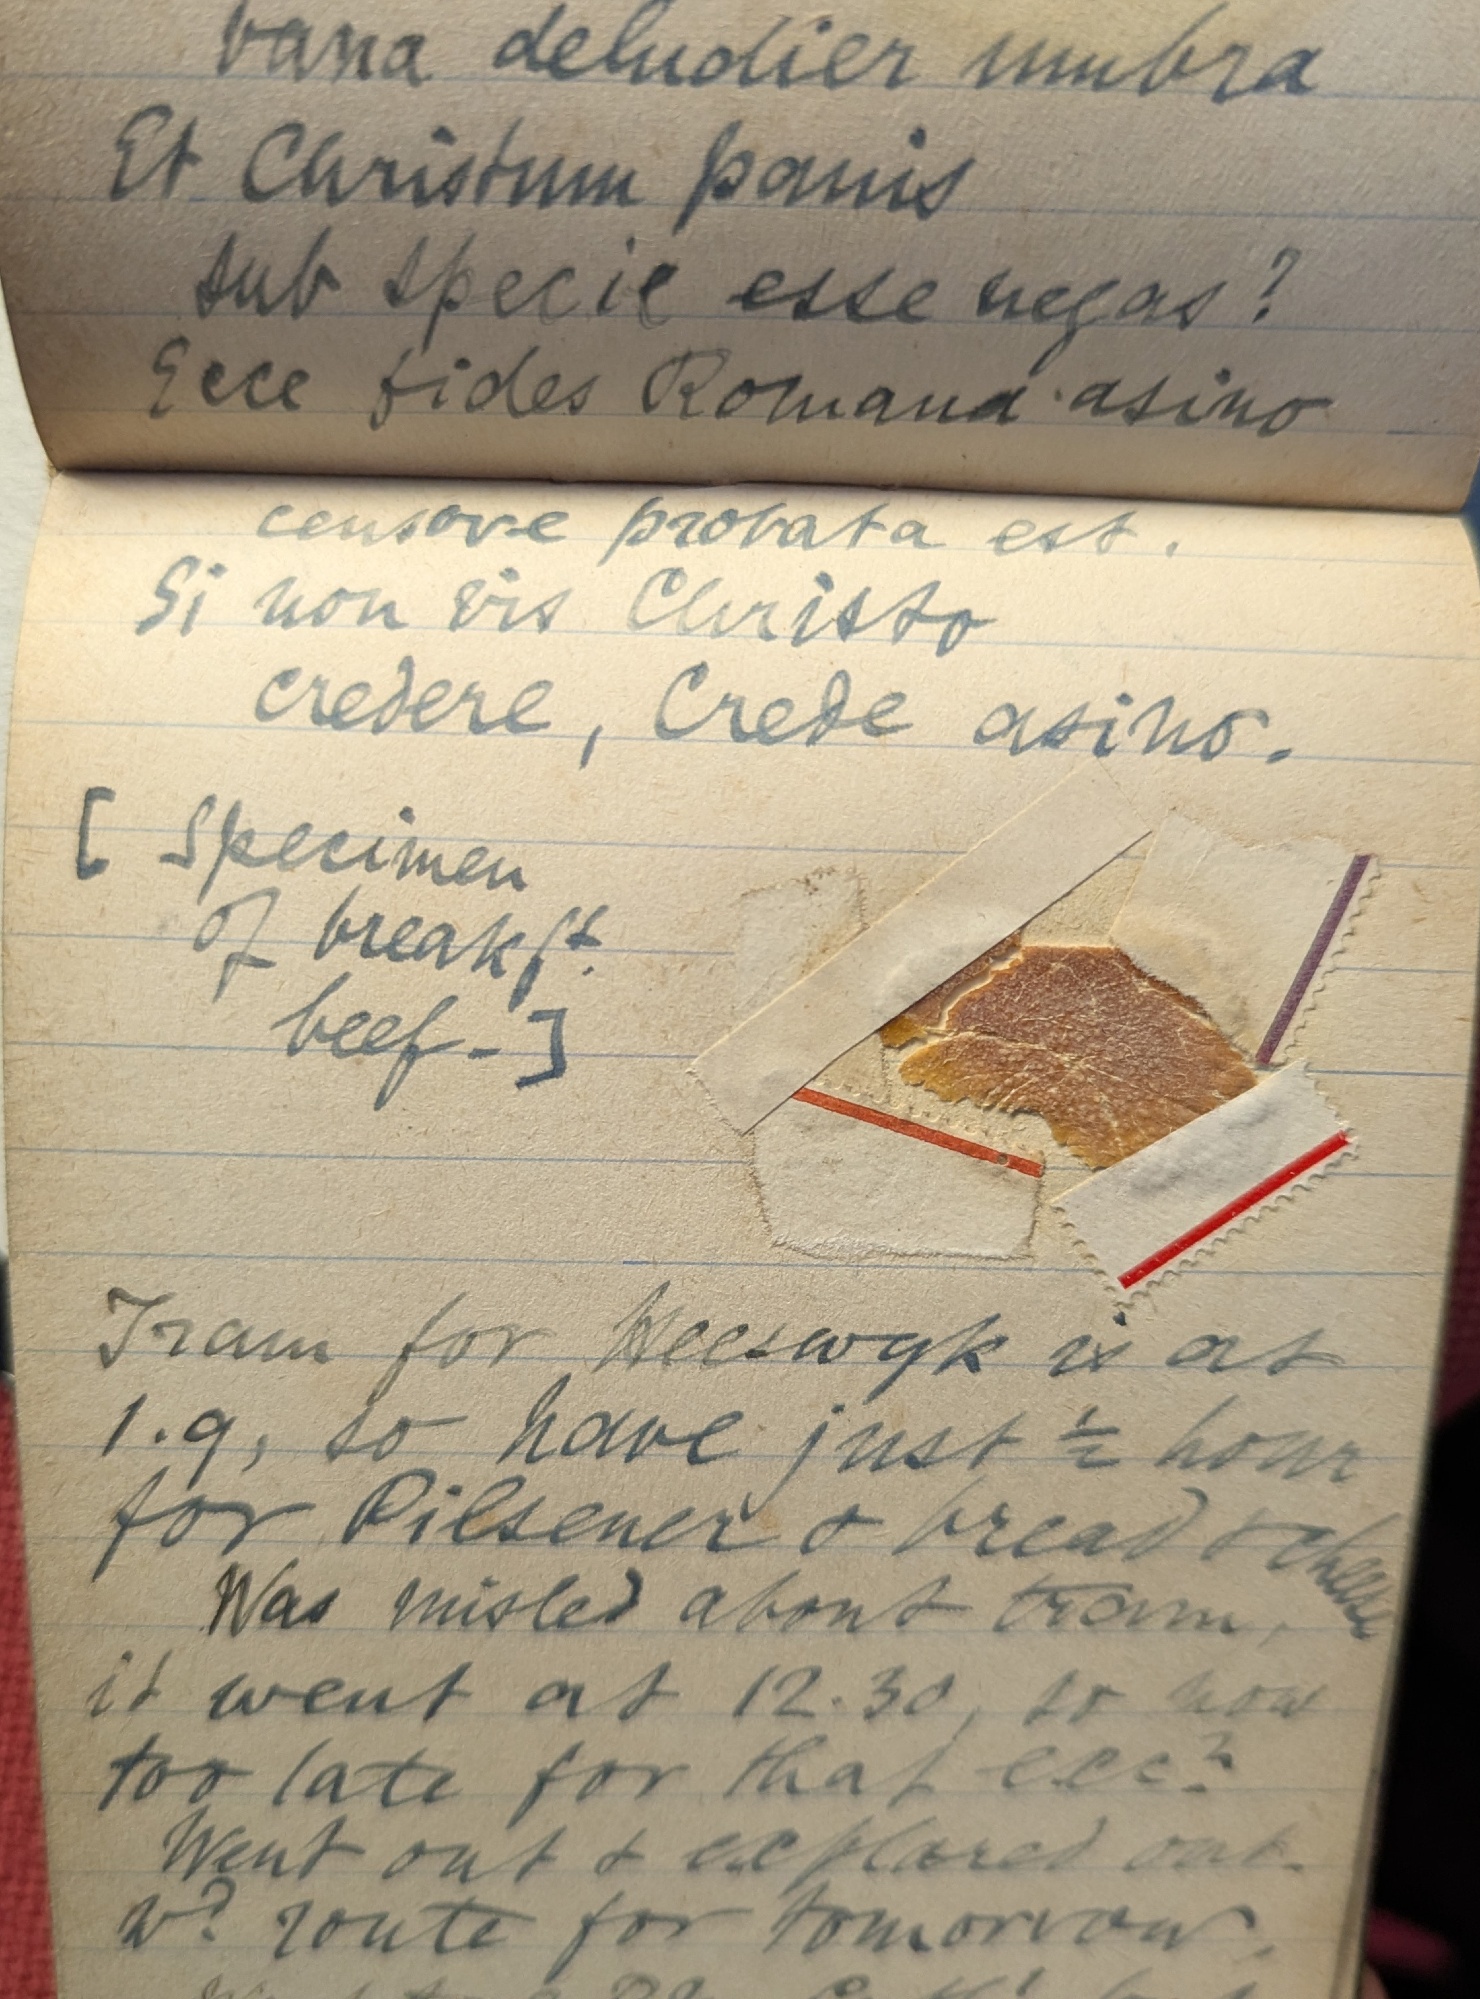 vana deludier umbra
Et Christum panis
sub specie esse negas?
Ecce fides Romana asino
censore probata est.
Si non vis Christo
credere, Crede asino.
[ Specimen
of breakft.
beef - ]
Tram for Heeswyk is at
1.9, so have just ½ hour
for Pilsener & bread & cheese
Was misled about tram,
it went at 12.30, so now
too late for that exc?
Went out & explored out-
w? route for tomorrow.